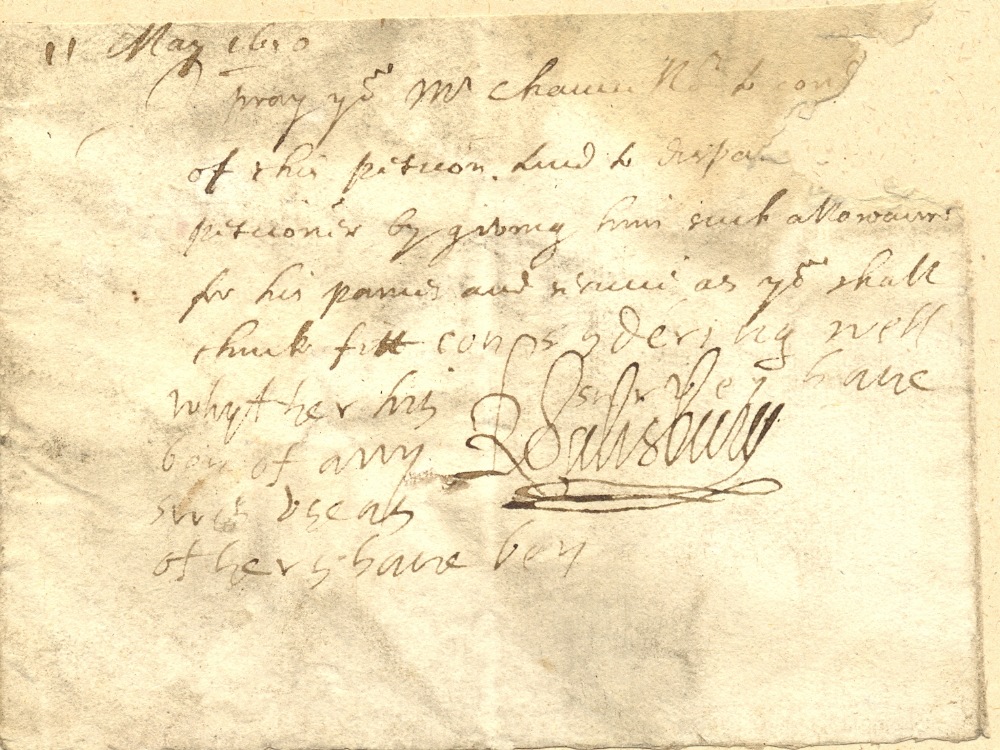 11 May 1610
pray you Mr Chauncellor to cons
of this peticon. And to dispa
peticioner by giveing him such allowaunce
for his paines and service as you shall
think fitt consydering well
whyther his survey have
ben of any
suits vse as
others have ben
RSalisbury